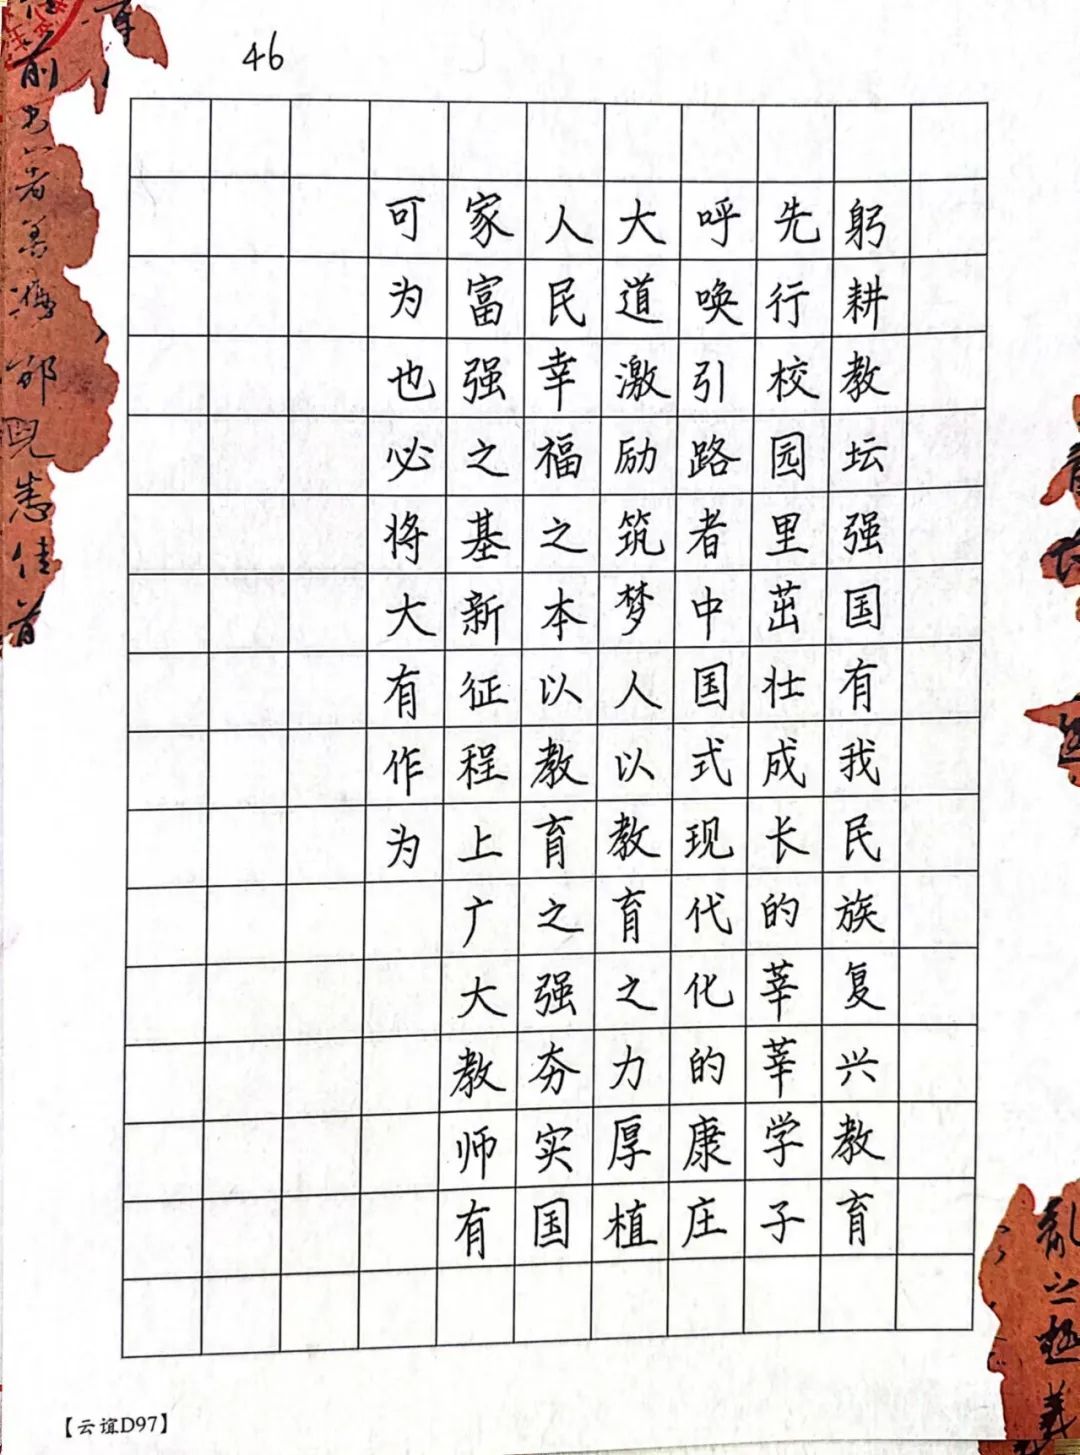 46
躬耕教坛强国有我民族复兴教育
先行校园里茁壮成长的莘莘学子
呼唤引路者中国式现代化的康庄
大道激励筑梦人以教育之力厚植
人民幸福之本以教育之强夯实国
家富强之基新征程上广大教师有
可为也必将大有作为
【云谊D97】